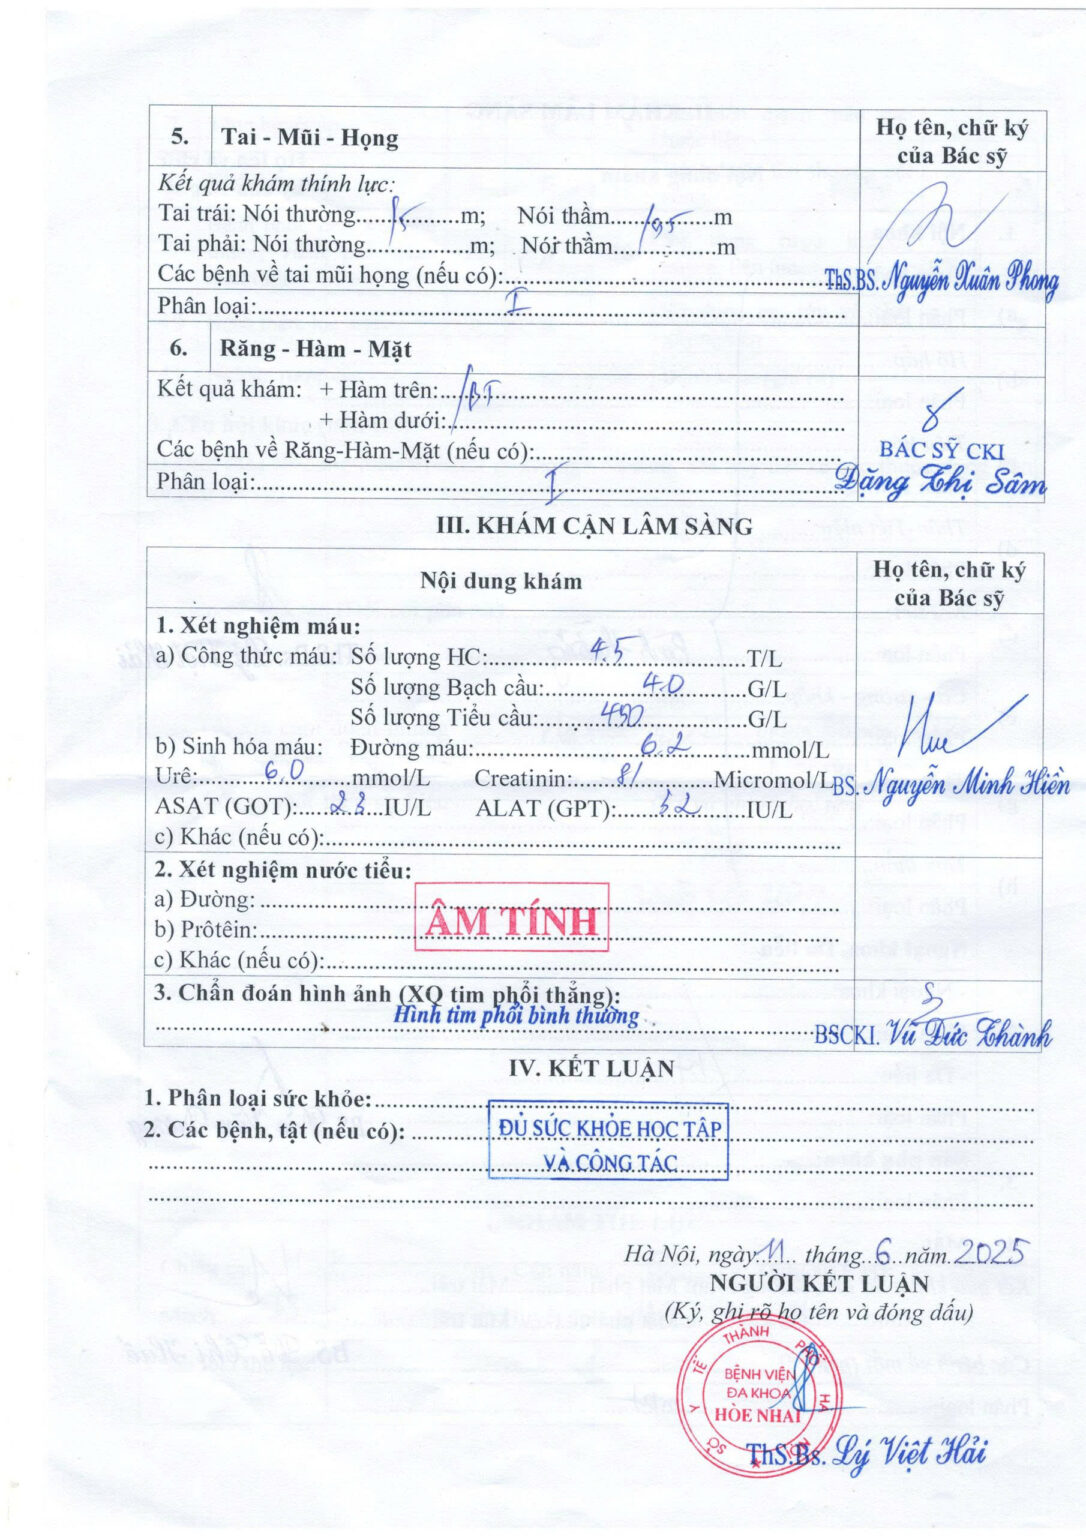 5. Tai - Mũi - Họng
Họ tên, chữ ký
của Bác sỹ
Kết quả khám thính lực:
Tai trái: Nói thường..........5........m; Nói thầm..........0,5........m
Tai phải: Nói thường.................m; Nói thầm.................m
Các bệnh về tai mũi họng (nếu có):
ThS.BS. Nguyễn Xuân Phong
Phân loại: I
6. Răng - Hàm - Mặt
Kết quả khám: + Hàm trên: BT
+ Hàm dưới:
Các bệnh về Răng-Hàm-Mặt (nếu có):
BÁC SỸ CKI
Đặng Thị Sâm
Phân loại: I
III. KHÁM CẬN LÂM SÀNG
Nội dung khám
Họ tên, chữ ký
của Bác sỹ
1. Xét nghiệm máu:
a) Công thức máu: Số lượng HC: 4.5 T/L
Số lượng Bạch cầu: 4.0 G/L
Số lượng Tiểu cầu: G/L
b) Sinh hóa máu: Đường máu: 6.2 mmol/L
Urê: 6.0 mmol/L Creatinin: 81 Micromol/L
BS. Nguyễn Minh Hiền
ASAT (GOT): 23 IU/L ALAT (GPT): 32 IU/L
c) Khác (nếu có):
2. Xét nghiệm nước tiểu:
a) Đường:
b) Prôtêin:
ÂM TÍNH
c) Khác (nếu có):
3. Chẩn đoán hình ảnh (XQ tim phổi thẳng):
Hình tim phổi bình thường
BSCKI. Vũ Đức Thành
IV. KẾT LUẬN
1. Phân loại sức khỏe:
2. Các bệnh, tật (nếu có):
ĐỦ SỨC KHỎE HỌC TẬP
VÀ CÔNG TÁC
Hà Nội, ngày 11 tháng 6 năm 2025
NGƯỜI KẾT LUẬN
(Ký, ghi rõ họ tên và đóng dấu)
SỞ Y TẾ THÀNH PHỐ HÀ NỘI
BỆNH VIỆN
ĐA KHOA
HÒE NHAI
ThS.Bs. Lý Việt Hải